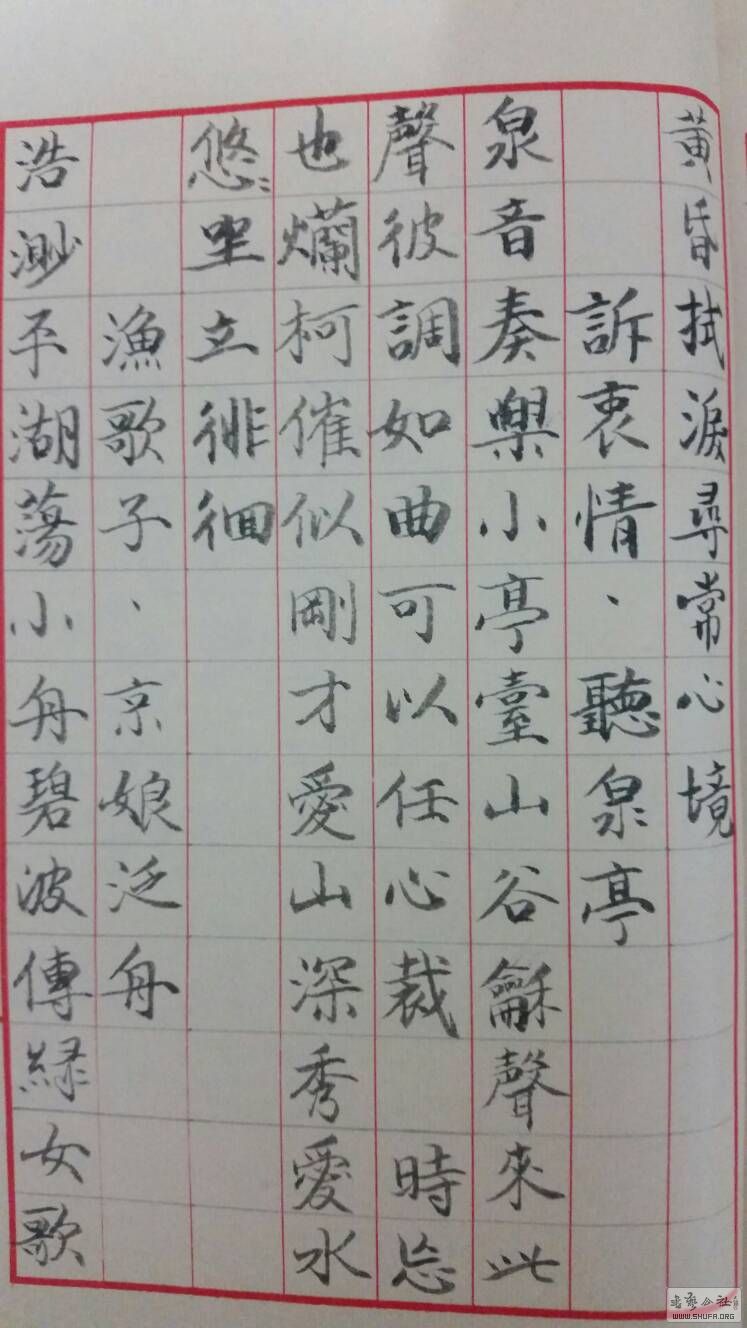 黃昏拭淚尋常心境
訴衷情、聽泉亭
泉音奏樂小亭臺山谷龢聲來此
聲彼調如曲可以任心裁 時忘
也爛柯催似剛才愛山深秀愛水
悠:坐立徘徊
漁歌子、京娘泛舟
浩渺平湖蕩小舟碧波傳綠女歌
WWW.SHUFA.ORG